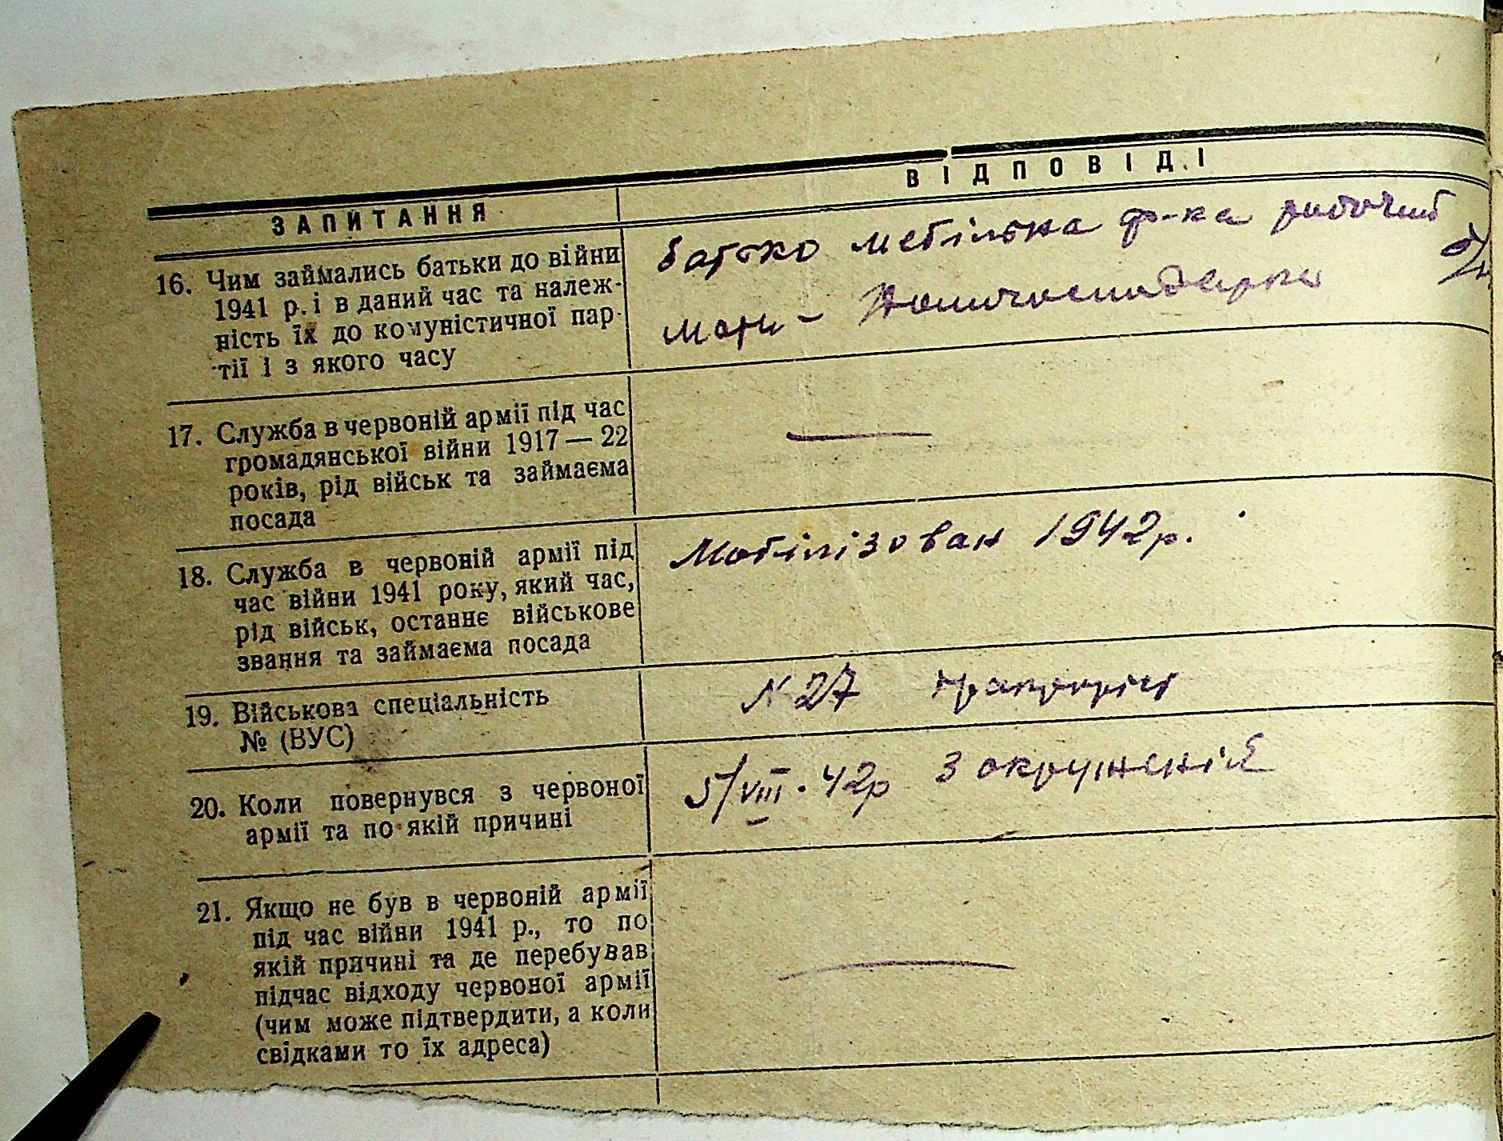 ЗАПИТАННЯ
ВІДПОВІДІ
16. Чим займались батьки до війни
1941 р. і в даний час та належ-
ність їх до комуністичної пар-
тії і з якого часу
батько мебільна ф-ка рабочий
б/п
мати - домогосподарка
17. Служба в червоній армії під час
громадянської війни 1917 — 22
років, рід військ та займаєма
посада
—
18. Служба в червоній армії під
час війни 1941 року, який час,
рід військ, останнє військове
звання та займаєма посада
Мобілізован 1942р.
19. Військова спеціальність
№ (ВУС)
№ 27
20. Коли повернувся з червоної
армії та по якій причині
5/VIII-42р з окруженія
21. Якщо не був в червоній армії
під час війни 1941 р., то по
якій причині та де перебував
підчас відходу червоної армії
(чим може підтвердити, а коли
свідками то їх адреса)
—